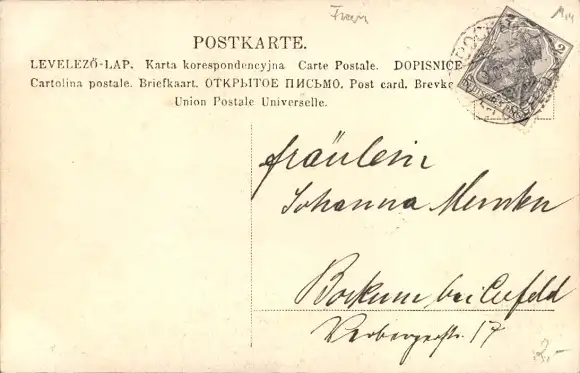 POSTKARTE.
LEVELEZŐ-LAP. Karta korespondencyjna Carte Postale. DOPISNICE
Cartolina postale. Briefkaart. ОТКРЫТОЕ ПИСЬМО. Post card. Brevko
Union Postale Universelle.
Fräulein
Johanna
Bockum bei Crefeld
17